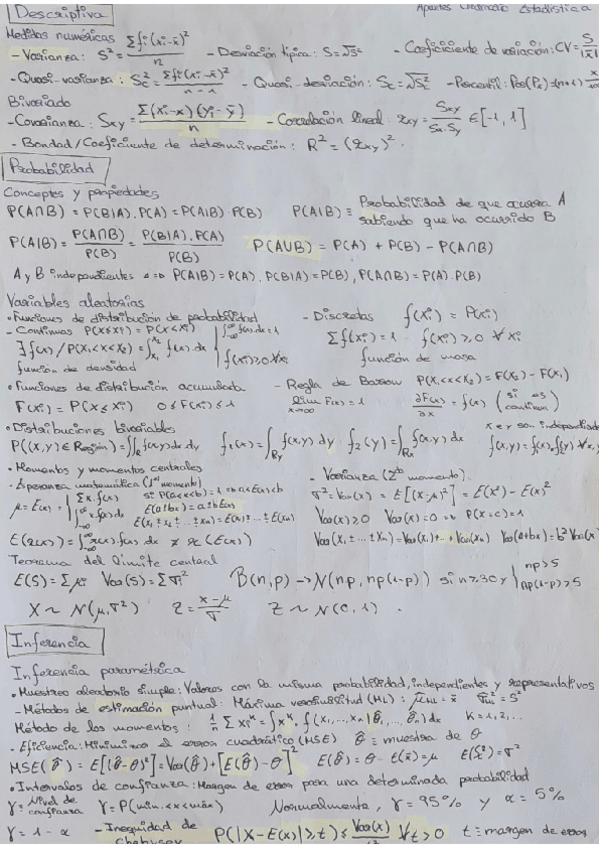 Descriptiva
Apuntes Estadística
Medidas numéricas
- Varianza: S² = Σfi(xi-x̄)²/n - Desviación típica: S=√S² - Coeficiente de variación: CV = S/|x̄|
- Quasi-varianza: Sc² = Σfi(xi-x̄)²/n-1 - Quasi-desviación: Sc=√Sc² - Percentil: Pos(Pk)=(n+1)
Bivariado
- Covarianza: Sxy = Σ(xi-x)(yi-ȳ)/n - Correlación lineal: rxy = Sxy/Sx·Sy ∈ [-1, 1]
- Bondad/Coeficiente de determinación: R² = (rxy)².
Probabilidad
Conceptos y propiedades
P(A∩B) = P(B|A).P(A) = P(A|B)·P(B) P(A|B) ≡ Probabilidad de que ocurra A
sabiendo que ha ocurrido B
P(A|B) = P(A∩B)/P(B) = P(B|A).P(A)/P(B) P(A∪B) = P(A) + P(B) - P(A∩B)
A y B independientes ⇔ P(A|B)=P(A), P(B|A)=P(B), P(A∩B)=P(A)·P(B)
Variables aleatorias
• Funciones de distribución de probabilidad - Discretas f(xi) = P(xi)
- Continuas P(x≤xi) = P(x<xi) ∫f(x)dx=1 Σf(xi)=1 f(xi)≥0 ∀xi
∃f(x) / P(x₁<x<x₂) = ∫f(x).dx f(xi)≥0 ∀xi función de masa
función de densidad
• Funciones de distribución acumulada - Regla de Barrow P(x₁<x<x₂) = F(x₂) - F(x₁)
F(xi) = P(x≤xi) 0≤F(xi)≤1 lim F(x)=1 ∂F(x)/∂x = f(x) (si es continua)
• Distribuciones bivariables x e y son independientes
P((x,y)∈Región) = ∫∫f(x,y)dx dy f₁(x) = ∫f(x,y) dy f₂(y) = ∫f(x,y) dx f(x,y) = f(x).f(y) ∀x,y
• Momentos y momentos centrales
- Esperanza matemática (1er momento) - Varianza (2º momento).
μ = E(x) = Σx.f(x) si P(a<x<b)=1 ⇒ a≤E(x)≤b σ²=Var(x) = E[(x-μ)²] = E(x²) - E(x)²
E(a+bx) = a+bE(x) Var(x)≥0 Var(x)=0 ⇔ P(x=c)=1
E(x₁±x₂±...±xn)=E(x₁)±...±E(xn)
E(r(x)) = ∫r(x)f(x) dx ≠ r(E(x)) Var(x₁±...±xn)=Var(x₁)+...+Var(xn) Var(a+bx)=b²Var(x)
Teorema del límite central
E(S) = Σμi Var(S) = Σσi² B(n,p) → N(np, np(1-p)) si n≥30 y np>5
np(1-p)>5
X ~ N(μ,σ²) Z = x-μ/σ Z ~ N(0,1).
Inferencia
Inferencia paramétrica
• Muestreo aleatorio simple: Valores con la misma probabilidad, independientes y representativos
- Métodos de estimación puntual: Máxima verosimilitud (ML): μ̂ML = x̄ σ̂²ML = S²
Método de los momentos: 1/n Σxi^K = ∫x^K. f(x₁,...,xn|θ̂₁,...θ̂n)dx K=1,2,...
- Eficiencia: Minimizar el error cuadrático (MSE) θ̂ ≡ muestra de θ
MSE(θ̂) = E[(θ̂-θ)²] = Var(θ̂)+[E(θ̂)-θ]² E(θ̂)=θ E(x̄)=μ E(Sc²)=σ²
• Intervalos de confianza: Margen de error para una determinada probabilidad
γ ≡ Nivel de confianza γ=P(mín.<x<máx) Normalmente, γ = 95% y α = 5%
γ = 1-α - Inequidad de Chebysev P(|X-E(x)|≥t) ≤ Var(x)/t² ∀t>0 t≡margen de error